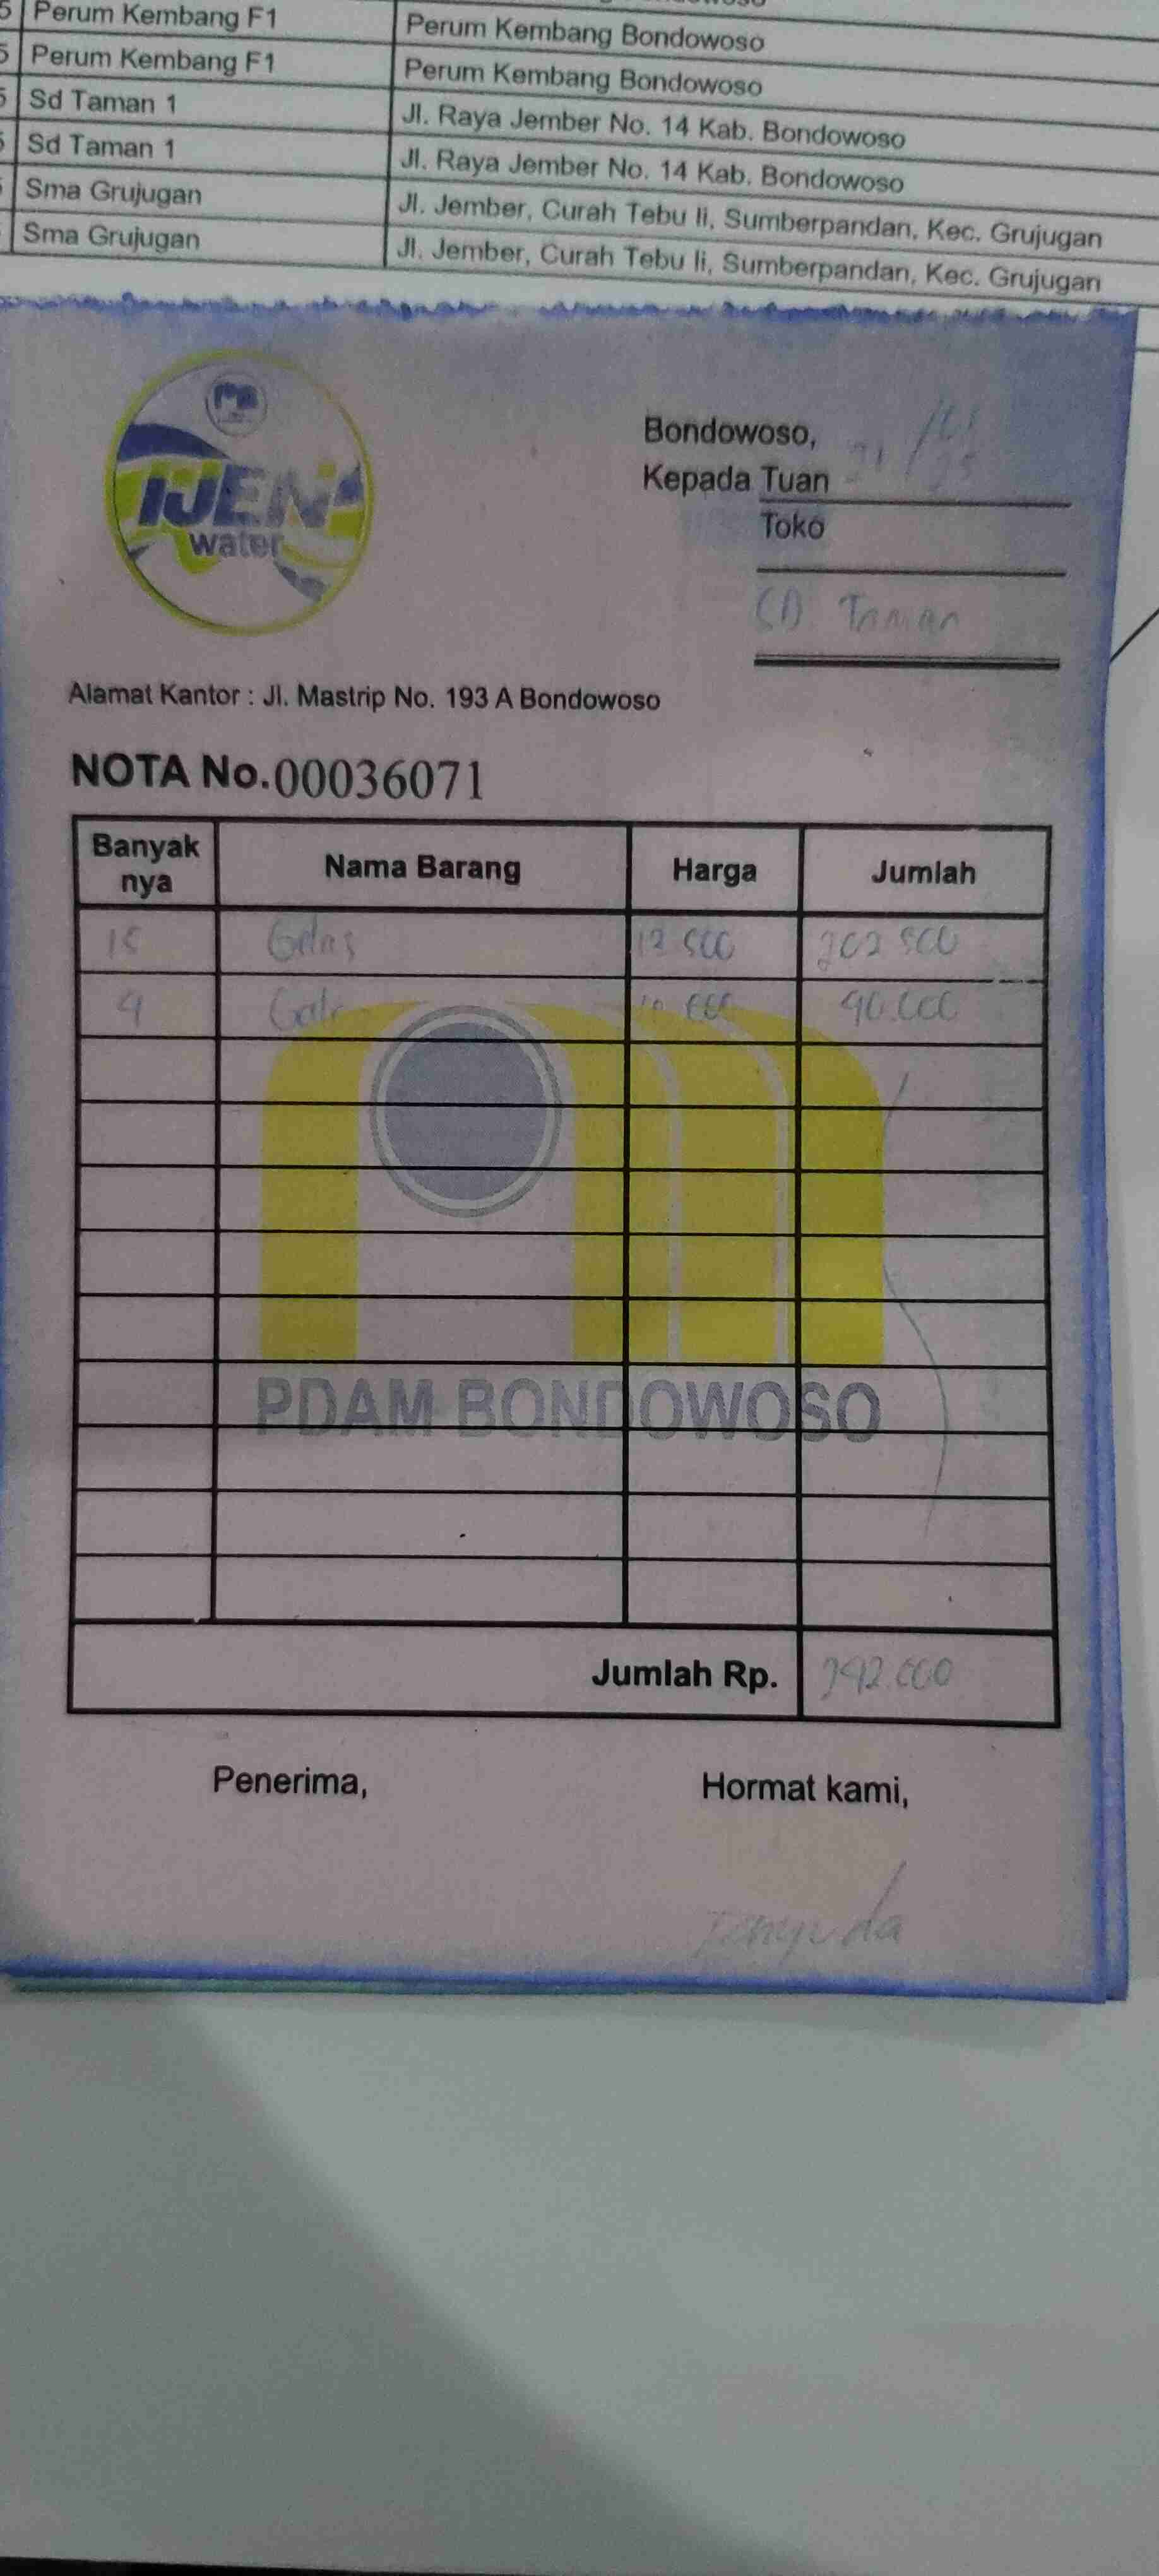 5 Perum Kembang F1 Perum Kembang Bondowoso
5 Perum Kembang F1 Perum Kembang Bondowoso
5 Sd Taman 1 Jl. Raya Jember No. 14 Kab. Bondowoso
5 Sd Taman 1 Jl. Raya Jember No. 14 Kab. Bondowoso
Sma Grujugan Jl. Jember, Curah Tebu Ii, Sumberpandan, Kec. Grujugan
Sma Grujugan Jl. Jember, Curah Tebu Ii, Sumberpandan, Kec. Grujugan
IJEN
water
Bondowoso,
Kepada Tuan
Toko
SD Taman
Alamat Kantor : Jl. Mastrip No. 193 A Bondowoso
NOTA No.00036071
Banyak nya Nama Barang Harga Jumlah
15 Gelas 500
9 90.000
PDAM BONDOWOSO
Jumlah Rp.
Penerima, Hormat kami,